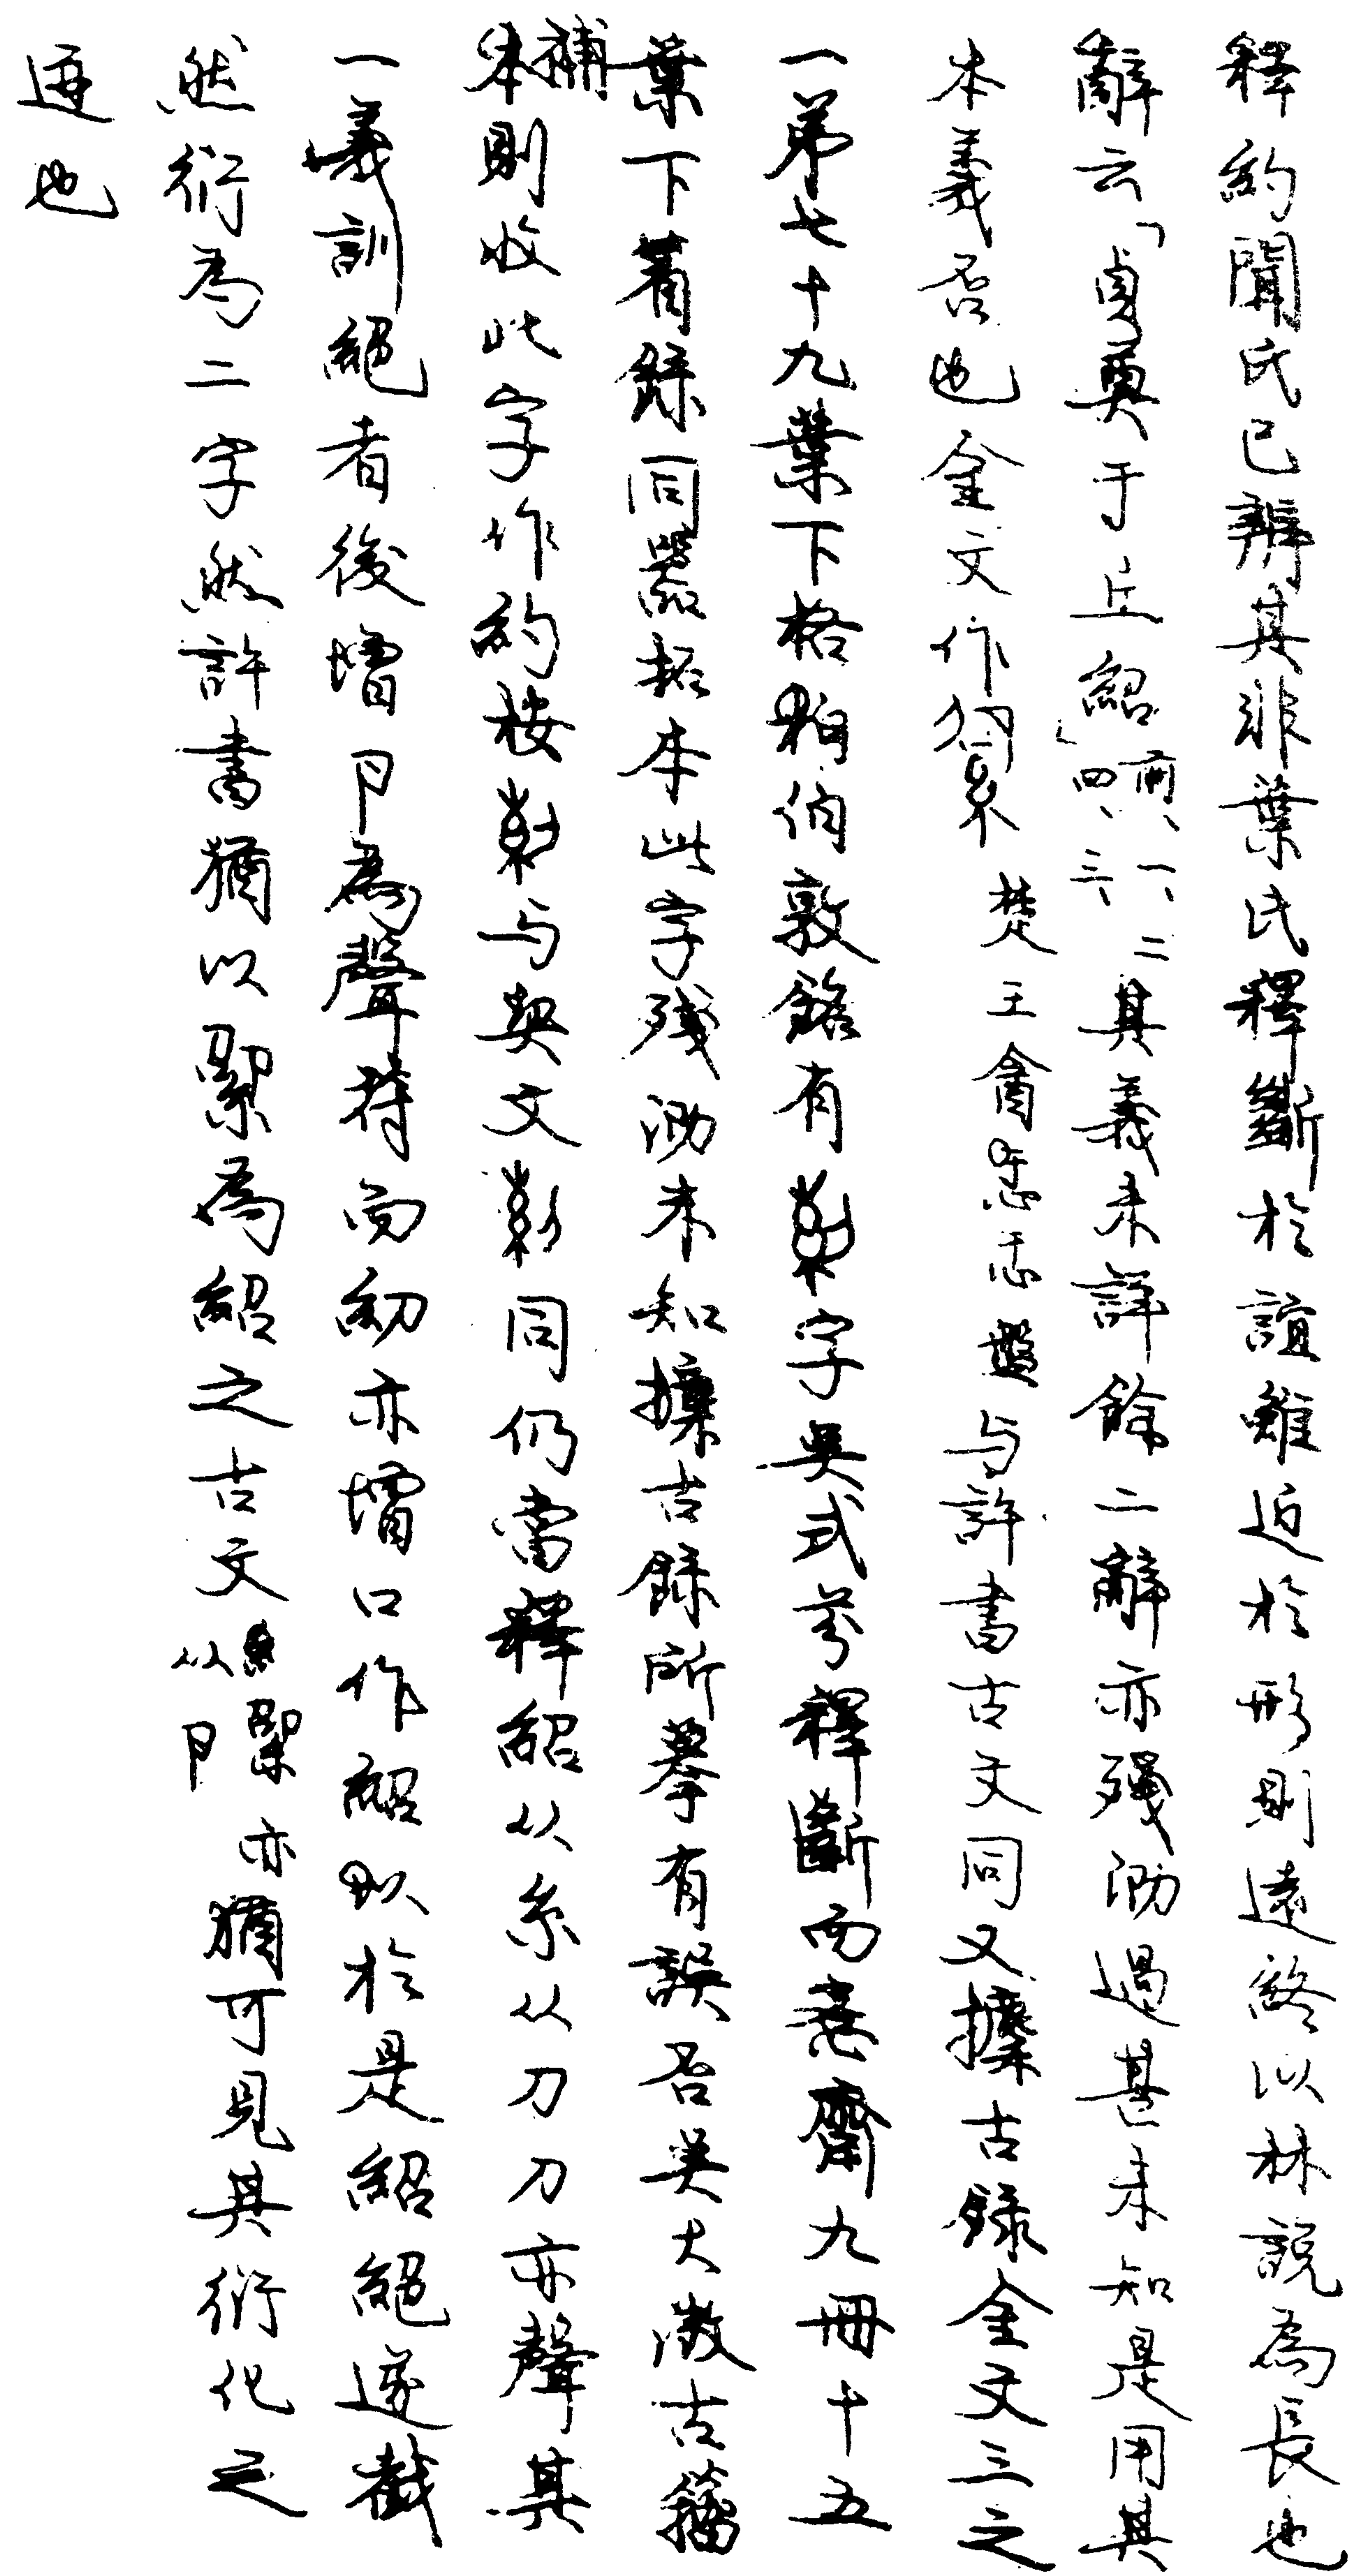 釋約聞氏已辨其非葉氏釋斷於誼雖近於形則遠終以林說為長也
辭云「貞奠于丘紹」前、一、二四、三、其義未詳餘二辭亦殘泐過甚未知是用其
本義否也金文作 楚王酓忎盤与許書古文同又攈古錄金文三之
一弟七十九葉下格伯敦銘有 字吳式芬釋斷而愙齋九冊十五
葉下著錄同器拓本此字殘泐未知攈古錄所摹有誤否吳大澂古籀
補本則收此字作約按 与契文 同仍當釋紹从糸从刀刀亦聲其
一義訓絕者後增卩為聲符而紉亦增口作紹於是紹絕遂截
然衍為二字然許書猶以 為紹之古文 从卩亦猶可見其衍化之
迹也